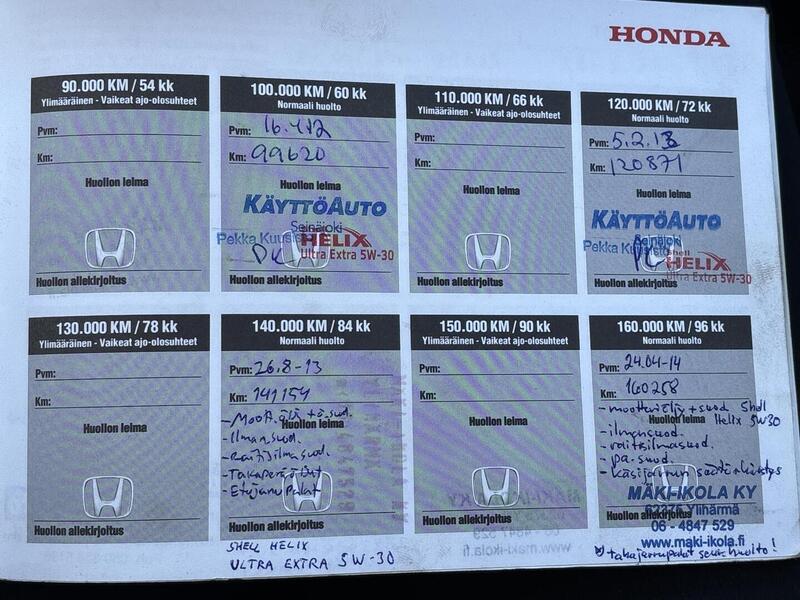 HONDA
90.000 KM / 54 kk
Ylimääräinen - Vaikeat ajo-olosuhteet
Pvm:
Km:
Huollon leima
Huollon allekirjoitus
100.000 KM / 60 kk
Normaali huolto
Pvm: 16.4.12
Km: 99620
Huollon leima
KÄYTTÖAUTO
Seinäjoki
Pekka
HELIX
Ultra Extra 5W-30
Huollon allekirjoitus
110.000 KM / 66 kk
Ylimääräinen - Vaikeat ajo-olosuhteet
Pvm:
Km:
Huollon leima
Huollon allekirjoitus
120.000 KM / 72 kk
Normaali huolto
Pvm: 5.2.13
Km: 120871
Huollon leima
KÄYTTÖAUTO
Seinäjoki
Pekka Kuusisto
Shell
HELIX
Ultra Extra 5W-30
Huollon allekirjoitus
130.000 KM / 78 kk
Ylimääräinen - Vaikeat ajo-olosuhteet
Pvm:
Km:
Huollon leima
Huollon allekirjoitus
140.000 KM / 84 kk
Normaali huolto
Pvm: 26.8-13
Km: 141154
Huollon leima
- Ilmansuod.
- Raitisilmasuod.
- Etujarrupalat
Huollon allekirjoitus
SHELL HELIX
ULTRA EXTRA 5W-30
150.000 KM / 90 kk
Ylimääräinen - Vaikeat ajo-olosuhteet
Pvm:
Km:
Huollon leima
Huollon allekirjoitus
160.000 KM / 96 kk
Normaali huolto
Pvm: 24.04-14
Km: 160258
- moottoriöljy + suod Shell
Huollon leima
Helix 5W30
- ilmansuod.
- raitisilmasuod.
- pa-suod.
- käsijarrun säätö
MÄKI-IKOLA KY
62375 Ylihärmä
Huollon allekirjoitus
06 - 4847 529
www.maki-ikola.fi
takajarrupalat seur. huolto!